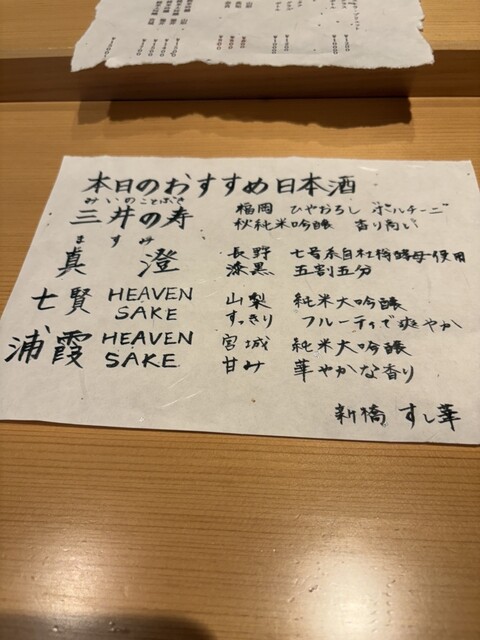 本日のおすすめ日本酒
みいのことぶき
三井の寿 福岡 ひやおろし ポルチーニ
秋純米吟醸 香り高い
ますみ
真澄 長野 七号系自社株酵母使用
漆黒 五割五分
七賢 HEAVEN SAKE 山梨 純米大吟醸
すっきり フルーティで爽やか
浦霞 HEAVEN SAKE 宮城 純米大吟醸
甘み 華やかな香り
新橋 すし華